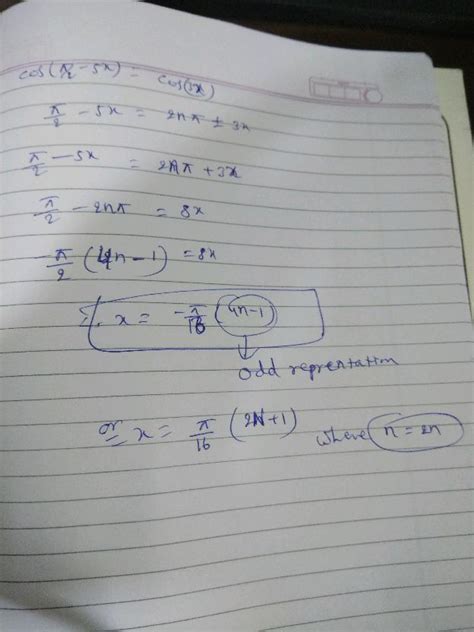 cos(π/2 - 5x) = cos(3x)
π/2 - 5x = 2nπ ± 3x
π/2 - 5x = 2nπ + 3x
π/2 - 2nπ = 8x
-π/2 (4n - 1) = 8x
x = -π/16 (4n-1)
odd reprentation
or x = π/16 (2N+1) where n = 2n